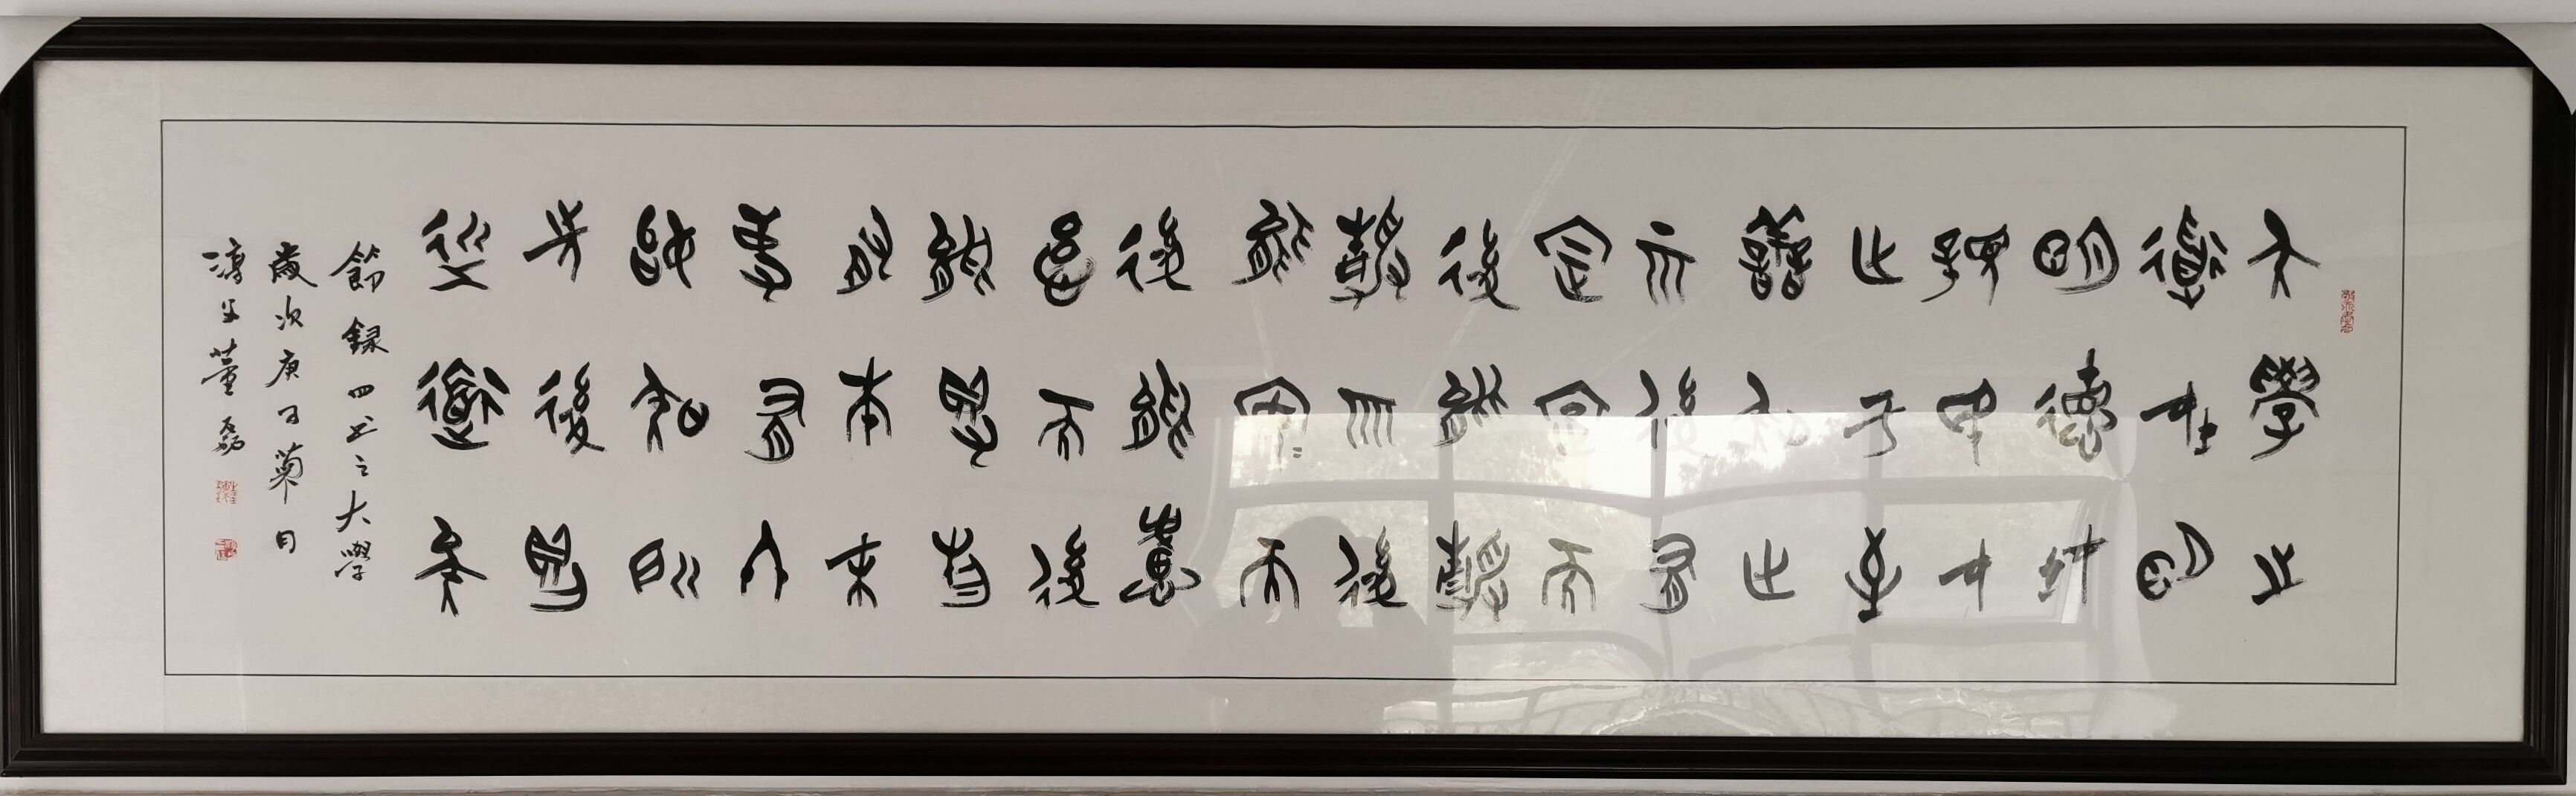 大學之
道在明
明德在
親民在
止于至
善知止
而後有
定定而
後能靜
靜而後
能安而
後能慮
慮而後
能得物
有本末
事有終
始知所
先後則
近道矣
節録四书之大學
歲次庚子菊月
父董磊